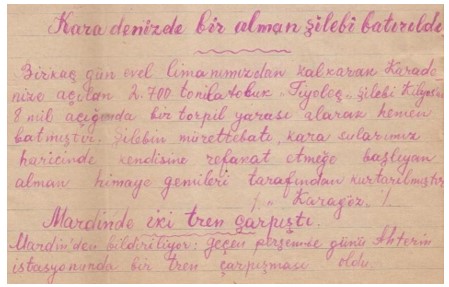 Kara denizde bir alman şilebi batırıldı
Birkaç gün evel limanımızdan kalkarak Karade
nize açılan 2.700 tonilatoluk şilebi Kilyosun
8 mil açığında bir torpil yarası alarak hemen
batmıştır. Şilebin mürettebatı, kara sularımız
haricinde kendisine refakat etmeğe başlıyan
alman himaye gemileri tarafından kurtarılmıştır
Karagöz.
Mardinde iki tren çarpıştı.
Mardin'den bildiriliyor: geçen perşembe günü
istasyonunda bir tren çarpışması oldu